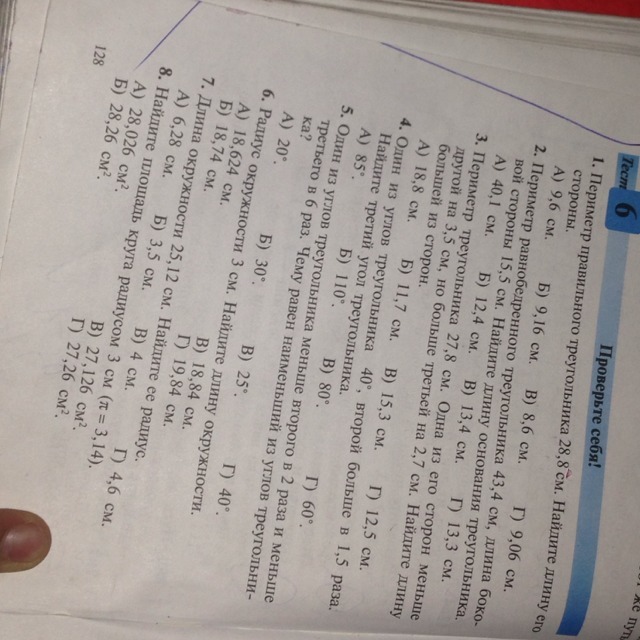 Тест 6
Проверьте себя!
1. Периметр правильного треугольника 28,8 см. Найдите длину его
стороны.
А) 9,6 см. Б) 9,16 см. В) 8,6 см. Г) 9,06 см.
2. Периметр равнобедренного треугольника 43,4 см, длина боко-
вой стороны 15,5 см. Найдите длину основания треугольника.
А) 40,1 см. Б) 12,4 см. В) 13,4 см. Г) 13,3 см.
3. Периметр треугольника 27,8 см. Одна из его сторон меньше
другой на 3,5 см, но больше третьей на 2,7 см. Найдите длину
большей из сторон.
А) 18,8 см. Б) 11,7 см. В) 15,3 см. Г) 12,5 см.
4. Один из углов треугольника 40°, второй больше в 1,5 раза.
Найдите третий угол треугольника.
А) 85°. Б) 110°. В) 80°. Г) 60°.
5. Один из углов треугольника меньше второго в 2 раза и меньше
третьего в 6 раз. Чему равен наименьший из углов треугольни-
ка?
А) 20°. Б) 30°. В) 25°. Г) 40°.
6. Радиус окружности 3 см. Найдите длину окружности.
А) 18,624 см. В) 18,84 см.
Б) 18,74 см. Г) 19,84 см.
7. Длина окружности 25,12 см. Найдите ее радиус.
А) 6,28 см. Б) 3,5 см. В) 4 см. Г) 4,6 см.
8. Найдите площадь круга радиусом 3 см (π = 3,14).
А) 28,026 см². В) 27,126 см².
Б) 28,26 см². Г) 27,26 см².
128